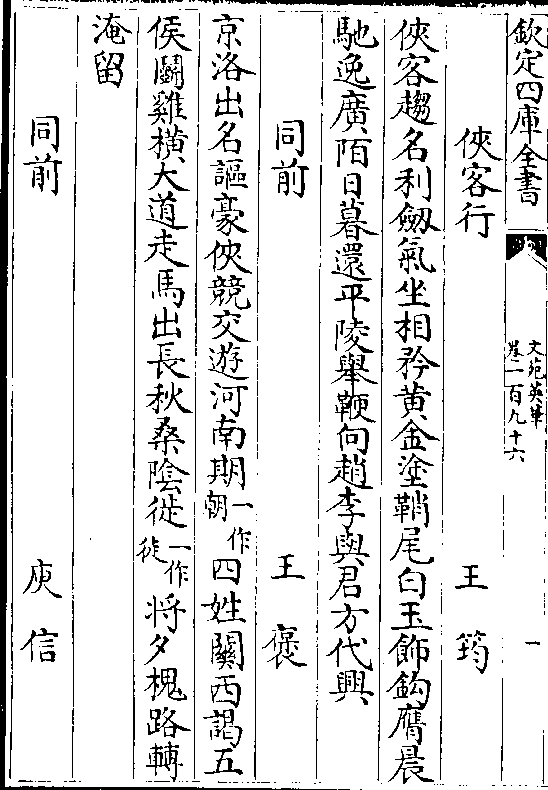 欽定四庫全書
文苑英華
卷一百九十六
一
俠客行 王筠
俠客趨名利劔氣坐相矜黄金塗鞘尾白玉飾鈎膺晨
馳逸廣陌日暮還平陵舉鞭向趙李與君方代興
同前 王褒
京洛出名謳豪俠競交遊河南期一作朝四姓關西謁五
侯鬭雞横大道走馬出長秋桑陰徙一作徒將夕槐路轉
淹留
同前 庾信